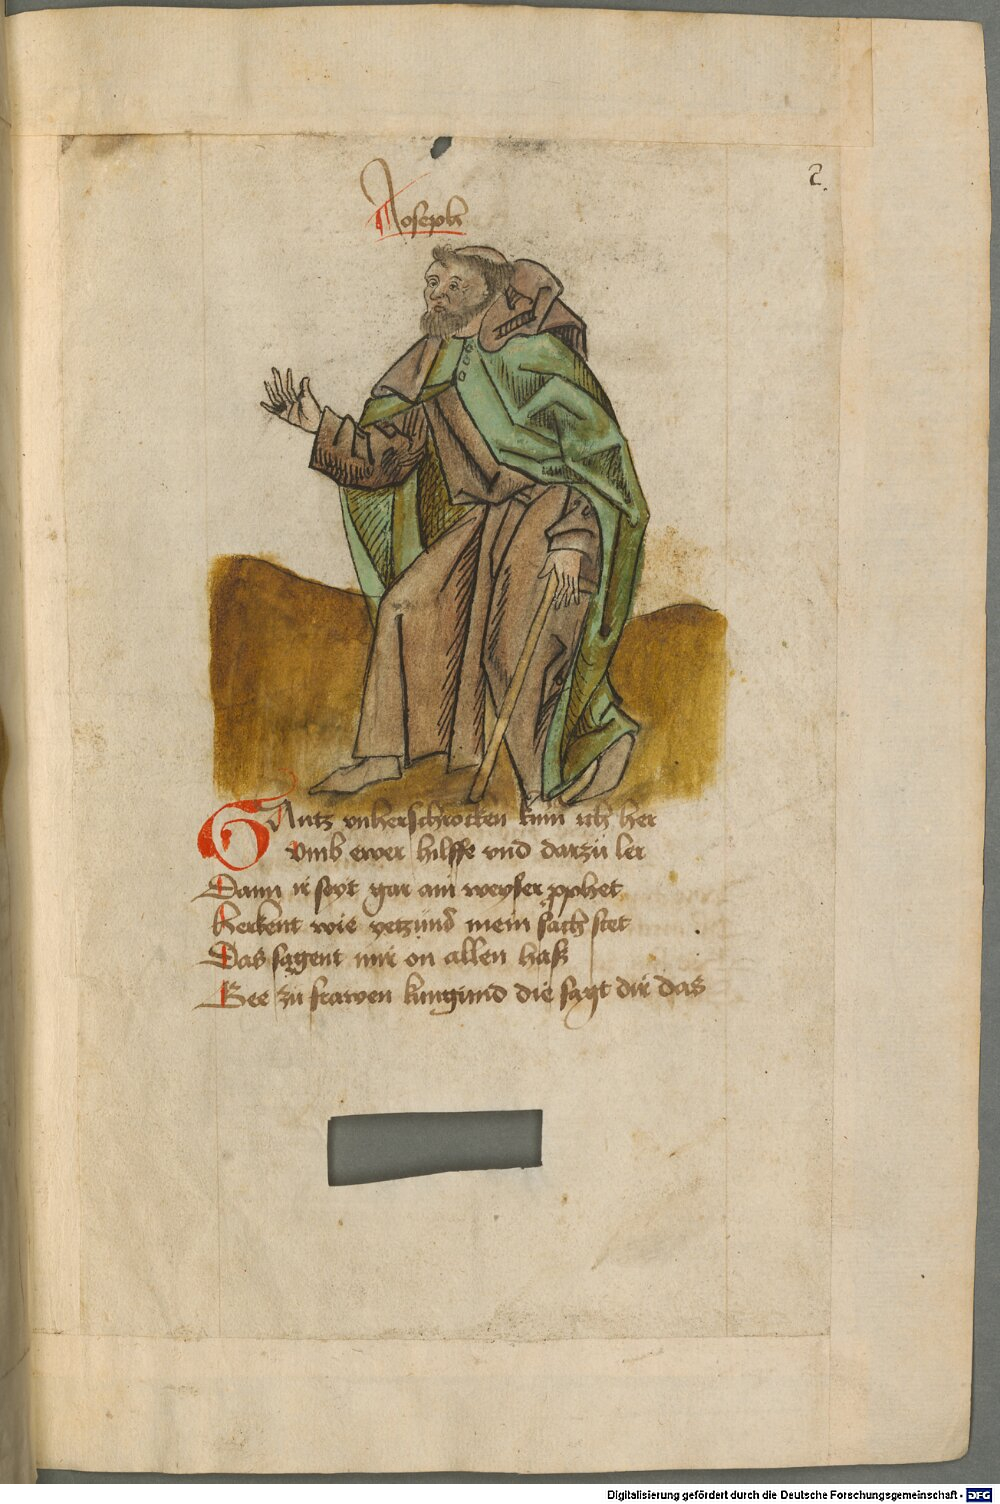 Joseph
2.
GAntz vnherschrocken kum ich her
vmb ewer hilffe vnd darzu ler
Dann ir seyt gar ain weyser pphet
Herkent wie yetzund mein sach stet
Das sagent mir on allen haß
Gee zu frawen kungund die sagt dir das
Digitalisierung gefördert durch die Deutsche Forschungsgemeinschaft - DFG